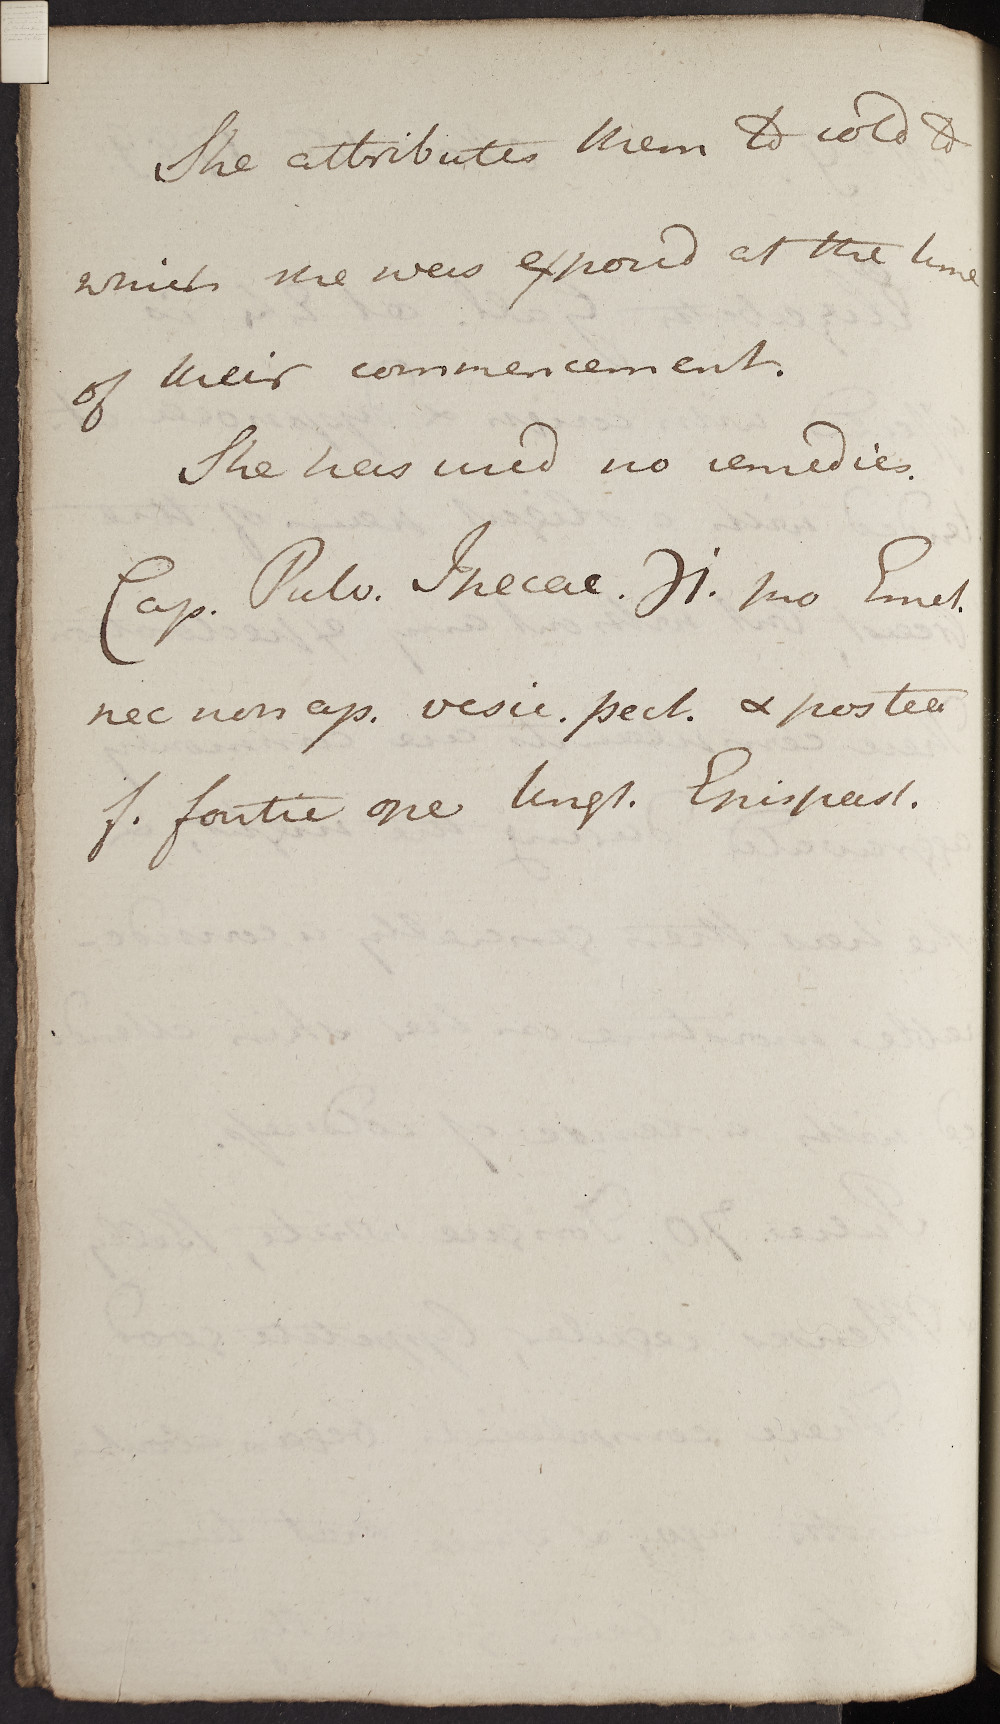 She attributes them to cold to
which she was exposed at the time
of their commencement.
She has used no remedies.
Cap. Pulv. Ipecac. ℈i. pro Emet.
nec non ap. vesic. pect. & postea
f. fontic ope Ungt. Epispast.